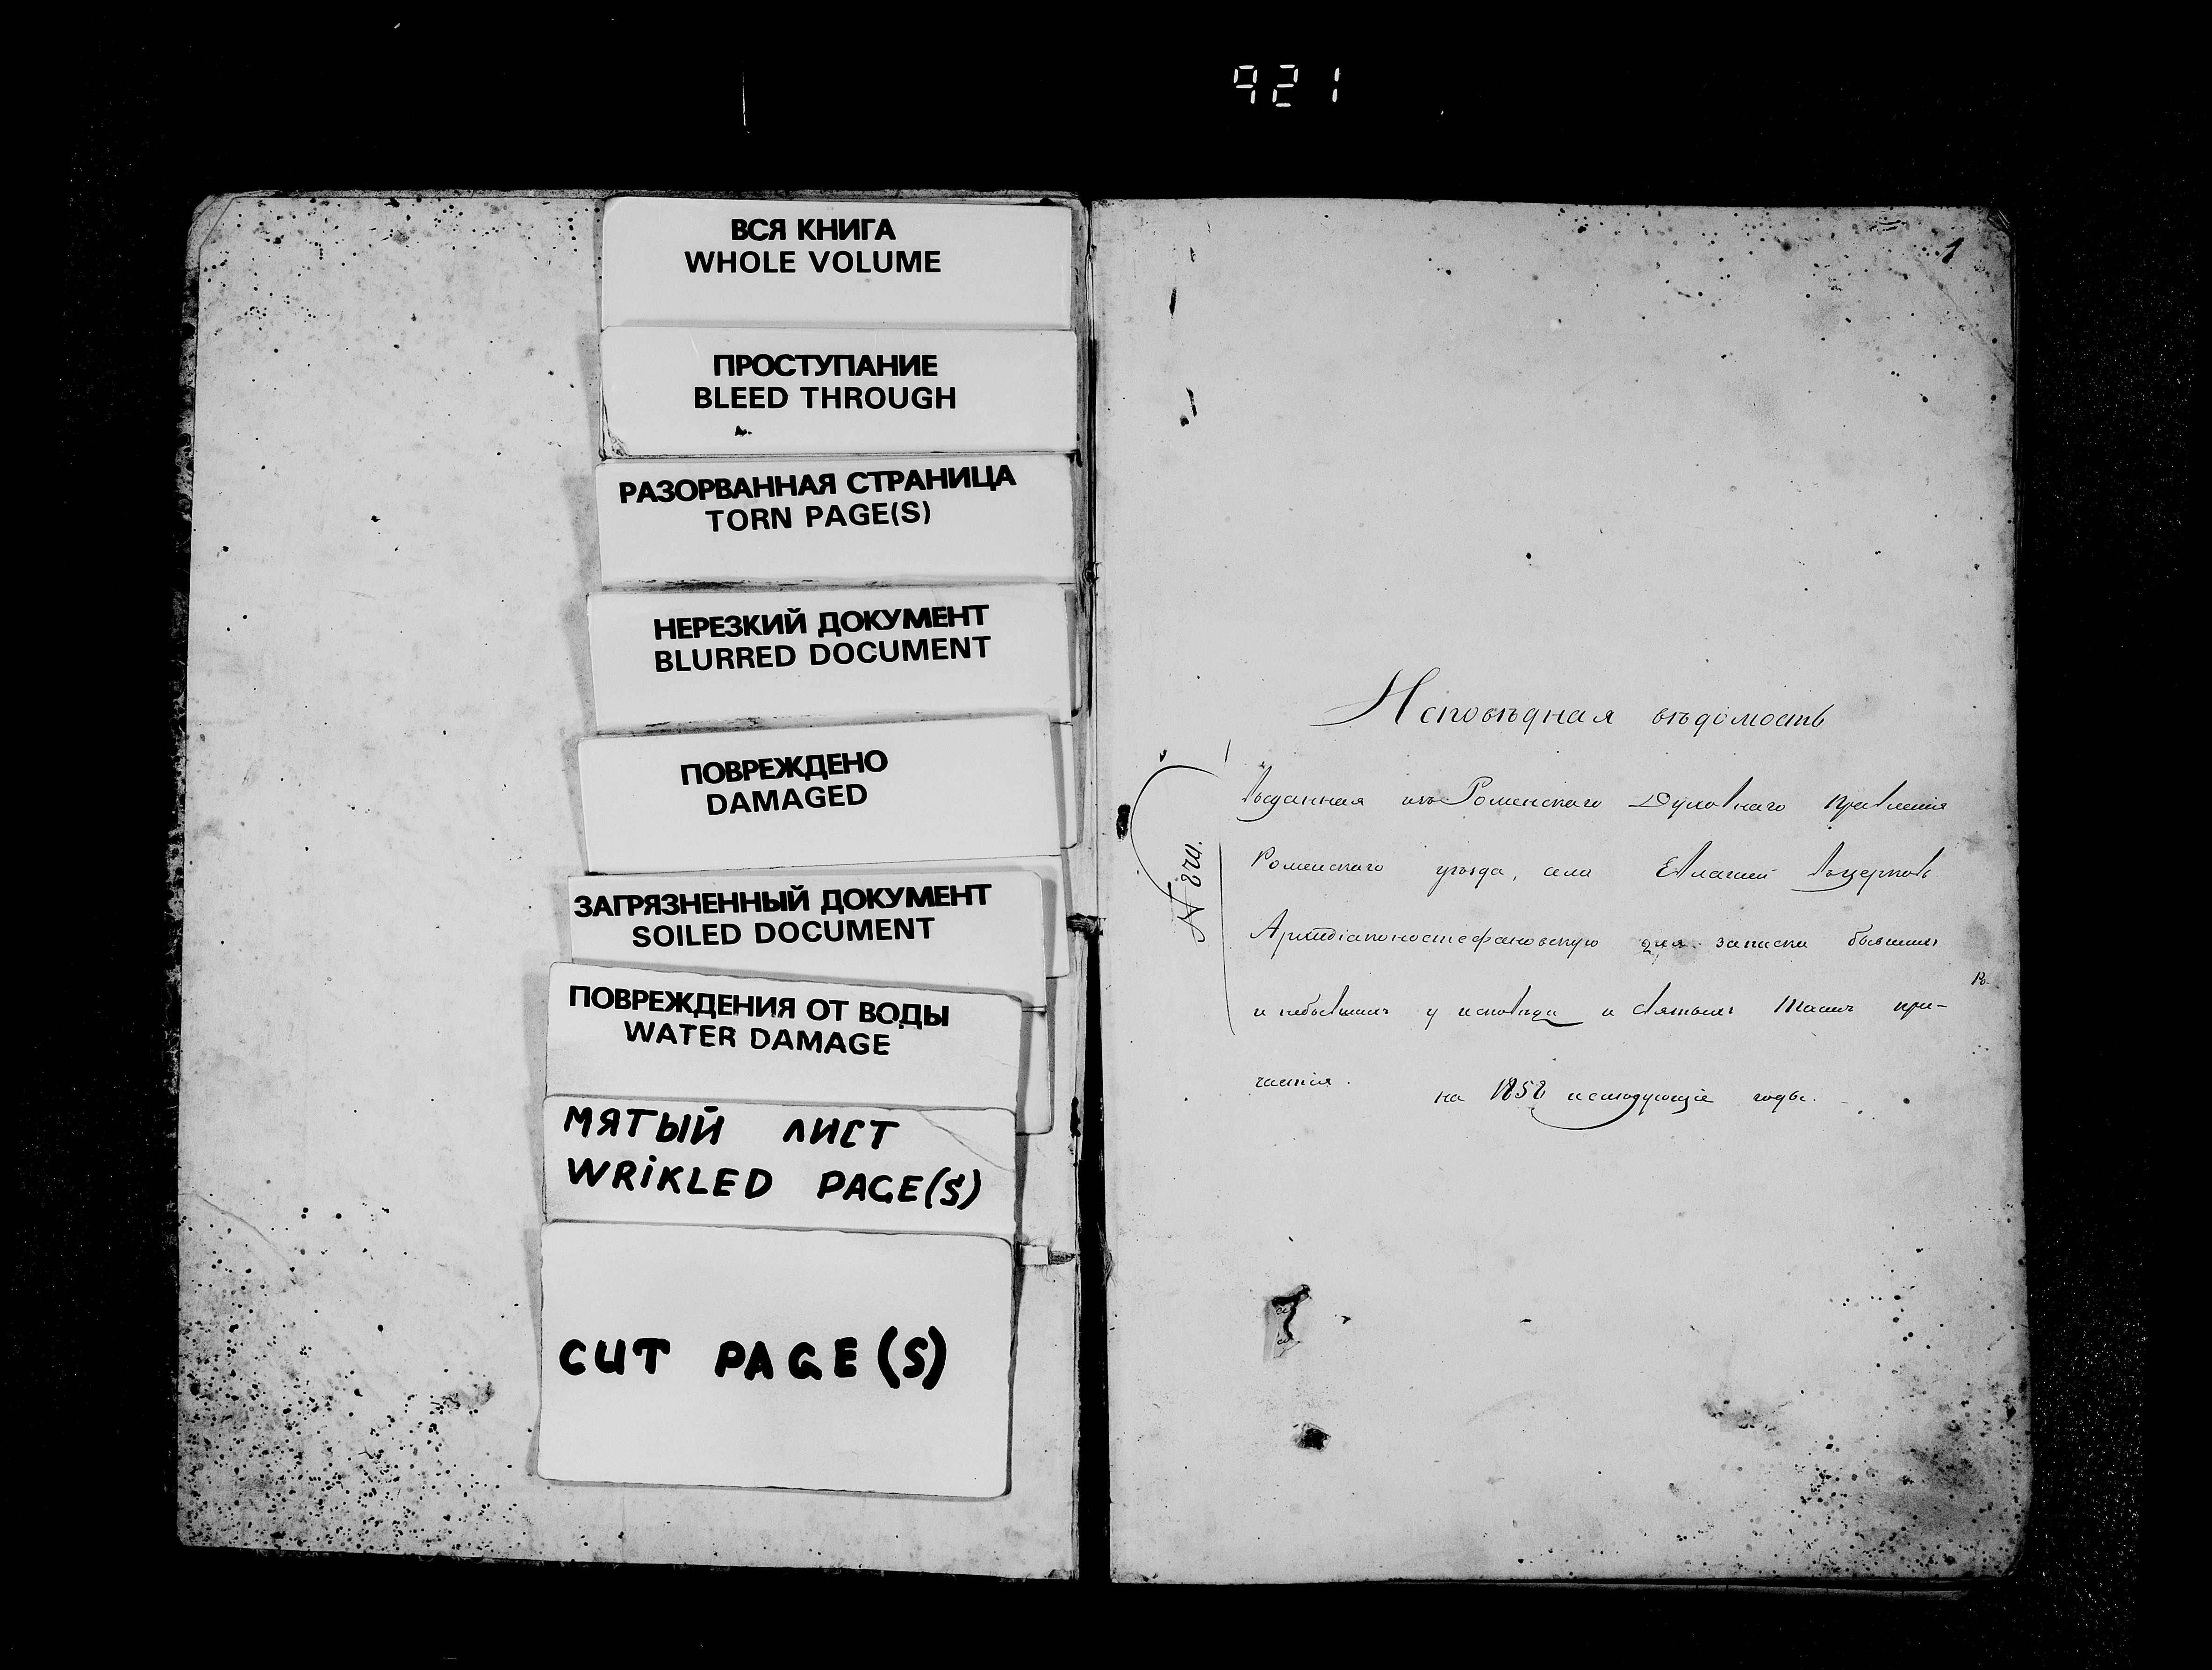 921
ВСЯ КНИГА
WHOLE VOLUME
ПРОСТУПАНИЕ
BLEED THROUGH
РАЗОРВАННАЯ СТРАНИЦА
TORN PAGE(S)
НЕРЕЗКИЙ ДОКУМЕНТ
BLURRED DOCUMENT
ПОВРЕЖДЕНО
DAMAGED
ЗАГРЯЗНЕННЫЙ ДОКУМЕНТ
SOILED DOCUMENT
ПОВРЕЖДЕНИЯ ОТ ВОДЫ
WATER DAMAGE
МЯТЫЙ ЛИСТ
WRiKLED PAGE(S)
CUT PAGE(S)
1
Исповѣдная вѣдомость
выданная изъ Роменскаго Духовнаго правленія
Роменскаго уѣзда, села Евлашей въ церковь
Архидіаконостефановскую для записки бывшихъ
и небывшихъ у исповѣди и святыхъ Таинъ при-
частія.
на исходующіе годы.